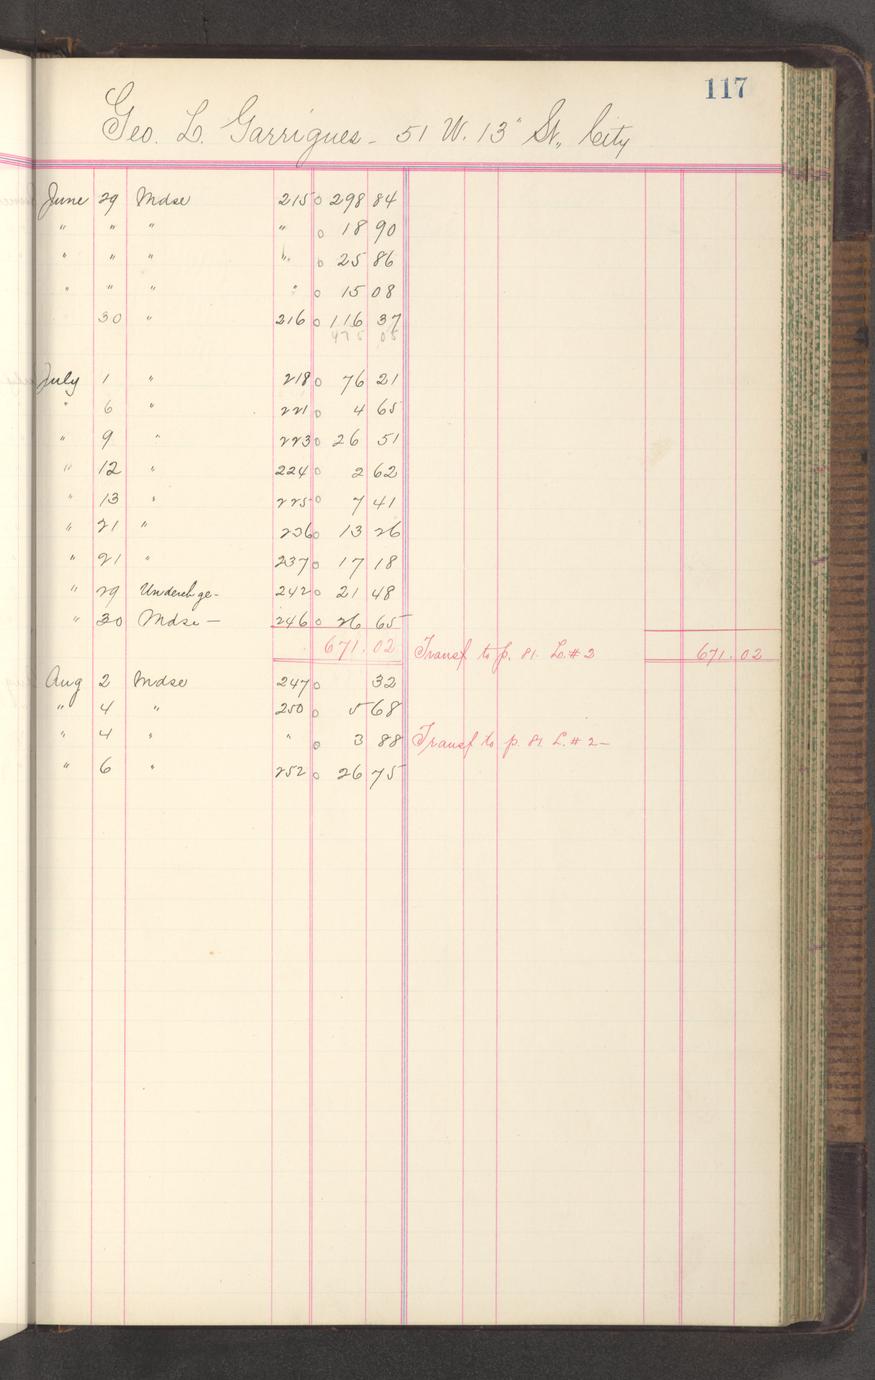 117
Geo. L. Garrigues - 51 W. 13" St., City
June 29 Mdse 215 0 298 84
" " " " 0 18 90
" " " " 0 25 86
" " " " 0 15 08
30 " 216 0 116 37
475 05
July 1 " 218 0 76 21
" 6 " 221 0 4 65
" 9 " 223 0 26 51
" 12 " 224 0 2 62
" 13 " 225 0 7 41
" 21 " 236 0 13 26
" 21 " 237 0 17 18
" 29 Underchge- 242 0 21 48
" 30 Mdse - 246 0 26 65
671.02 Transf to p. 81. L. #2 671.02
Aug 2 Mdse 247 0 32
" 4 " 250 0 5 68
" 4 " " 0 3 88 Transf to p. 81 L. # 2 -
" 6 " 252 0 26 75